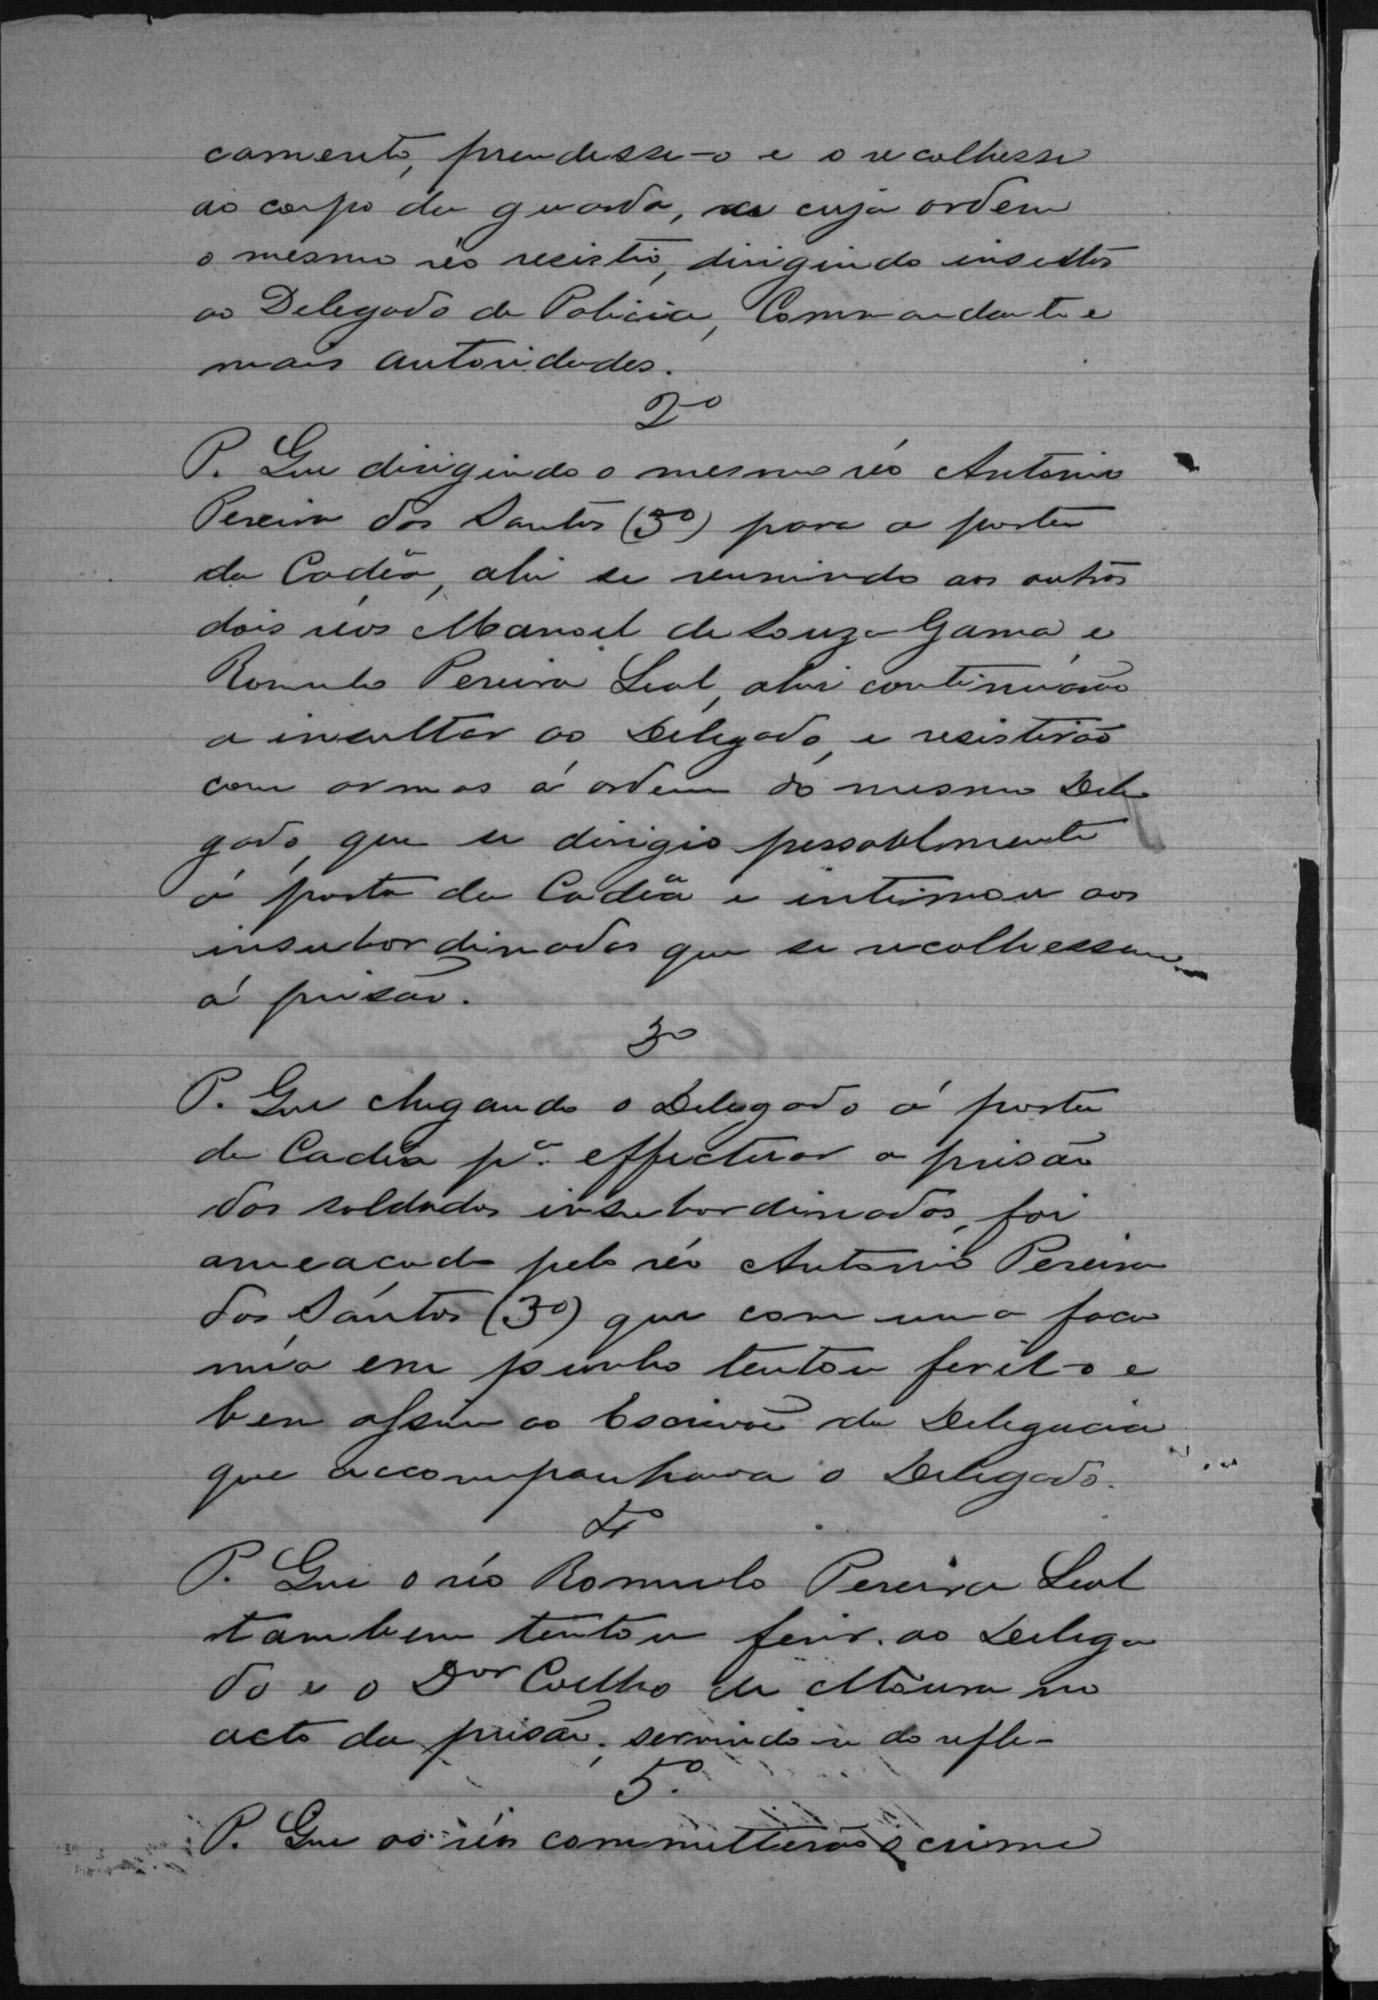 camento, prendesse-o e o recolhesse
ao corpo da guarda, a cuja ordem
o mesmo réo resistio, dirigindo insultos
ao Delegado de Policia, Commandante e
mais autoridades.
2º
P. Que dirigindo o mesmo réo Antonio
Pereira dos Santos (3º) para a porta
da Cadêa, ahi se reunindo aos outros
dois réos Manoel de Souza Gama e
Romulo Pereira Leal, ahi continuarão
a insultar ao Delegado, e resistirão
com armas á ordem do mesmo Dele
gado, que se dirigio pessoalmente
á porta da Cadêa e intimou aos
insubordinados que se recolhessem
á prisão.
3º
P. Que chegando o Delegado á porta
da Cadêa pª. effectuar a prisão
dos soldados insubordinados, foi
ameaçado pelo réo Antonio Pereira
dos Santos (3º) que com uma faca
núa em punho tentou feril-o e
bem assim ao Escrivão da Delegacia
que accompanhava o Delegado.
4º
P. Que o réo Romulo Pereira Leal
tambem tentou ferir ao Delega
do e o Dor Coelho de Moura no
acto da prisão, servindo-se do refle-
5º.
P. Que os réos committerão o crime